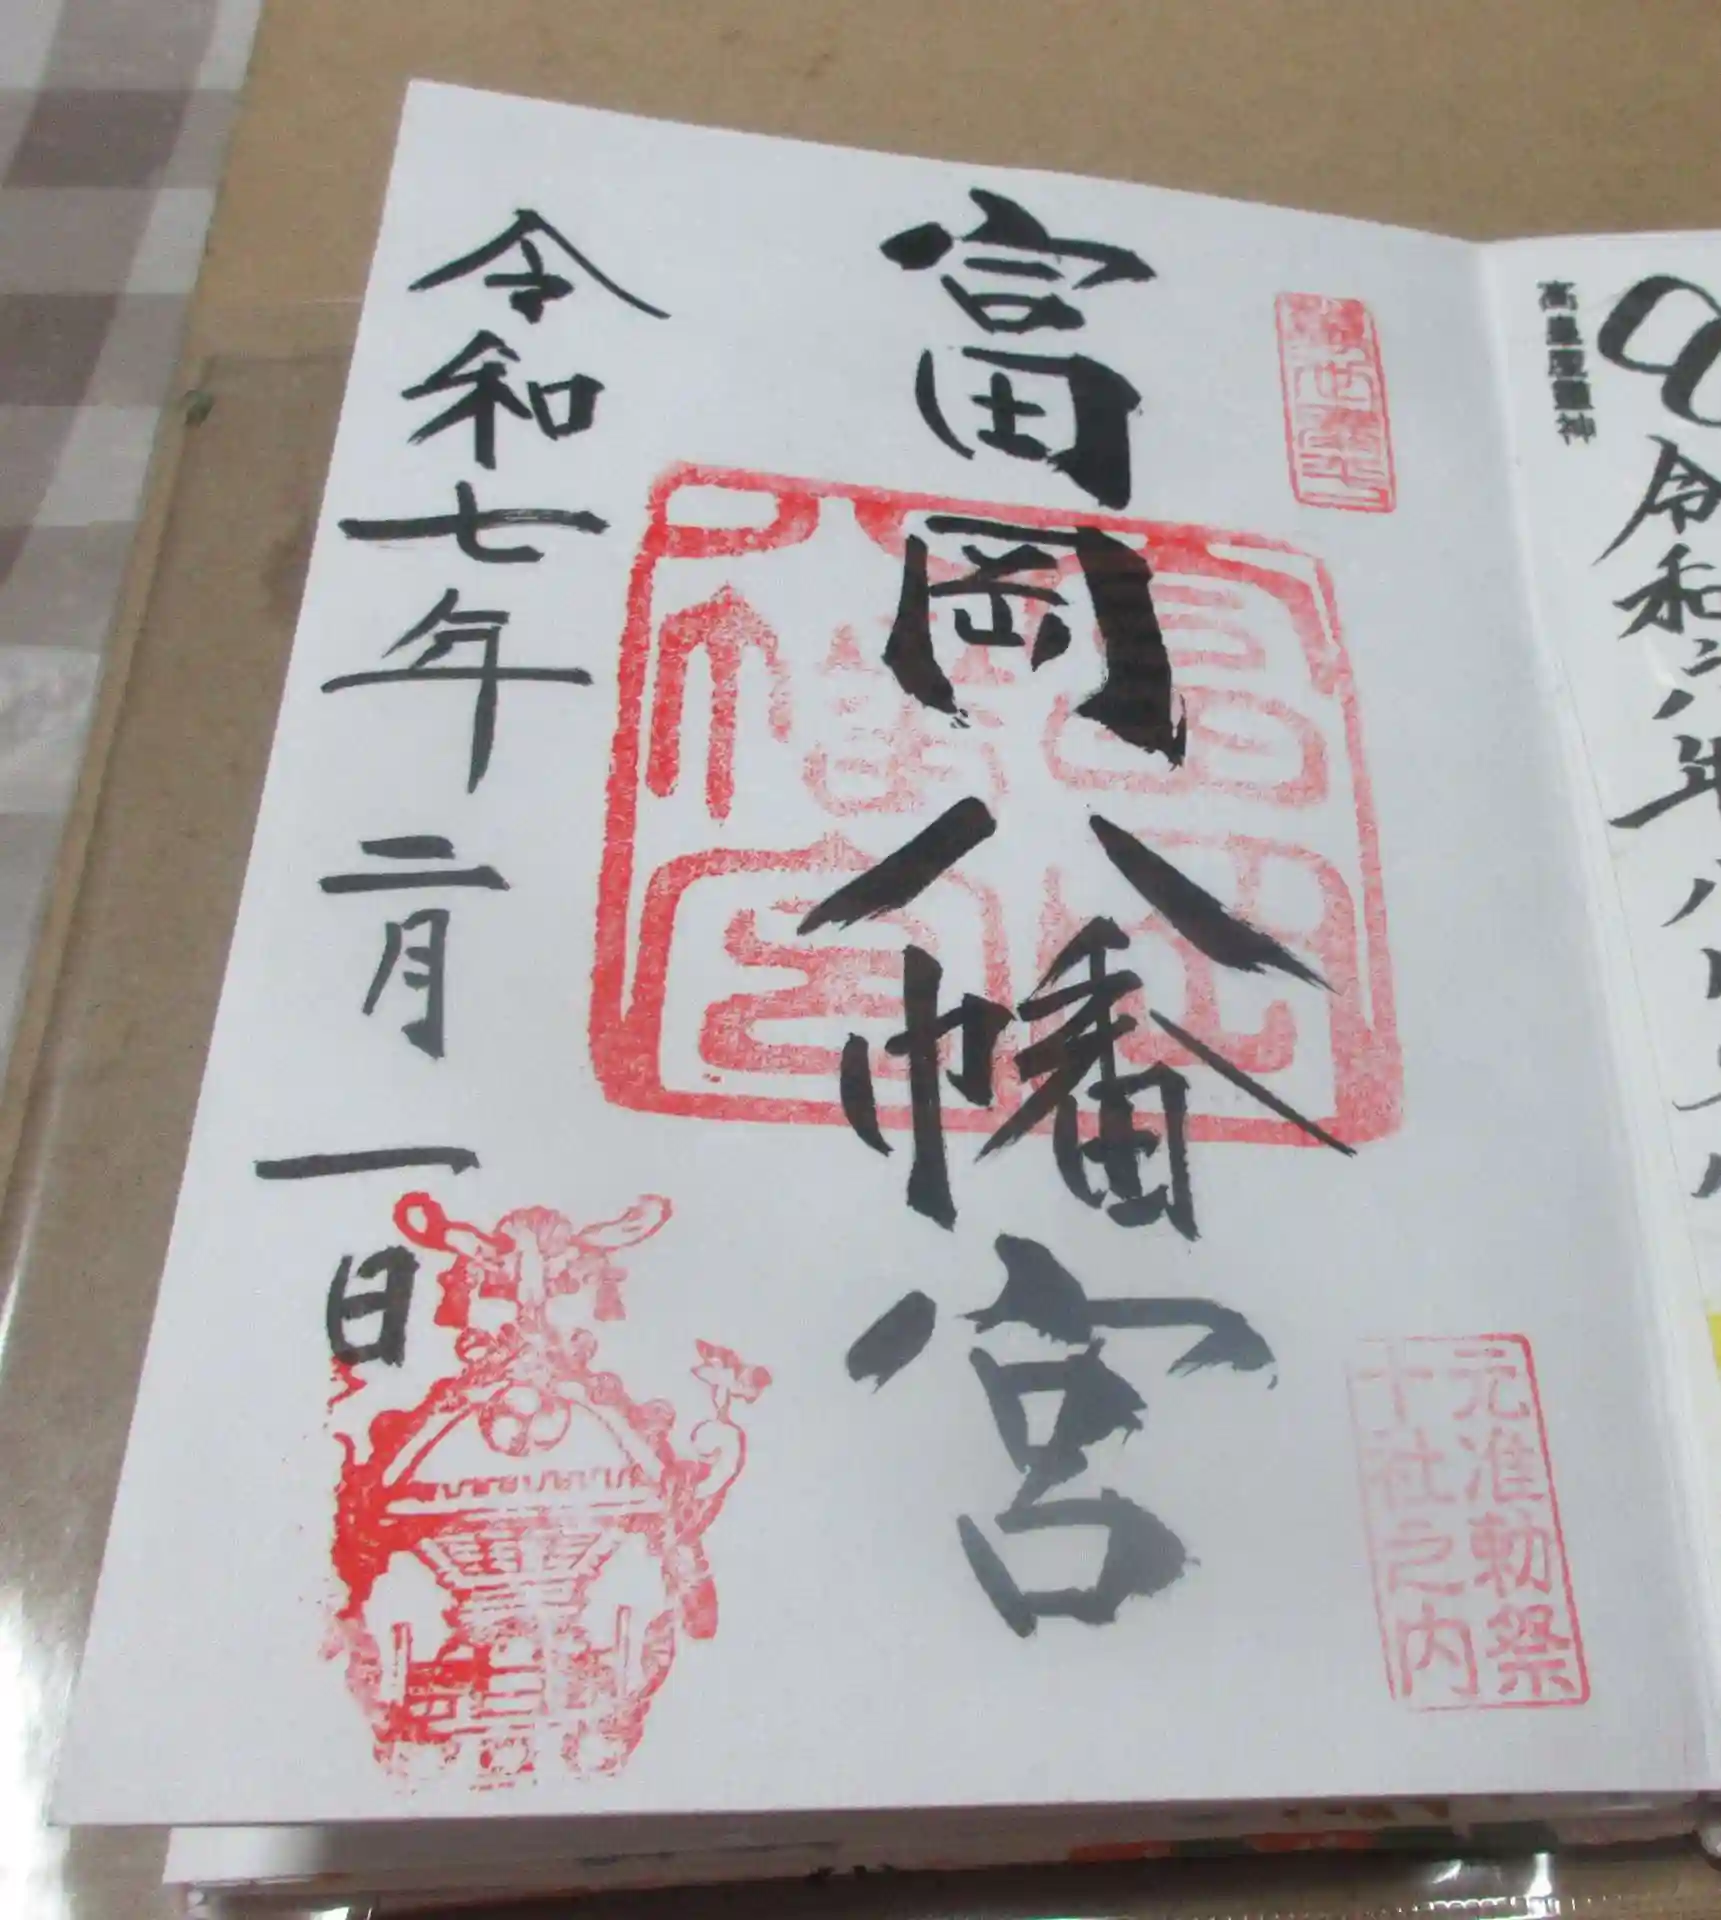 高皇産靈神
令和六年八月
富岡八幡宮
元准勅祭
十社之内
令和七年二月一日